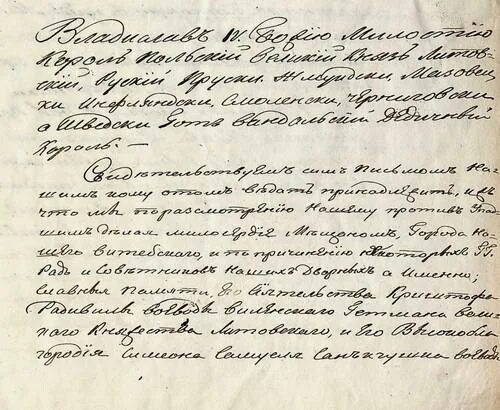 Владиславъ IV. Божiю Милостiю
Король Польскiй Великiй Князь Литов-
скiй, Рускiй Пруски, Жмудски, Мазовец-
ки Инфлянски, Смоленски, Черниговски
а Шведски Готъ Вандальскiй Дѣдичный
Король. —
Свидѣтельствуемъ симъ письмомъ На-
шимъ кому о томъ вѣдать принадлежитъ,
что мы по разсмотрѣнiю Нашему противъ
шимъ дѣлая милосердiе Мѣщаномъ, Города На-
шего витебского, и по причиненiю некоторыхъ ГГ.
Радъ и Совѣтниковъ Нашихъ Дворныхъ а Имянно;
Славныя Памяти, Его Сiятельства Криштофа
Радивила воеводы виленского Гетмана вели-
кого Княжества Литовского, и Его Высокобла-
городiя Симеона Самуеля Санъгушка воеводы